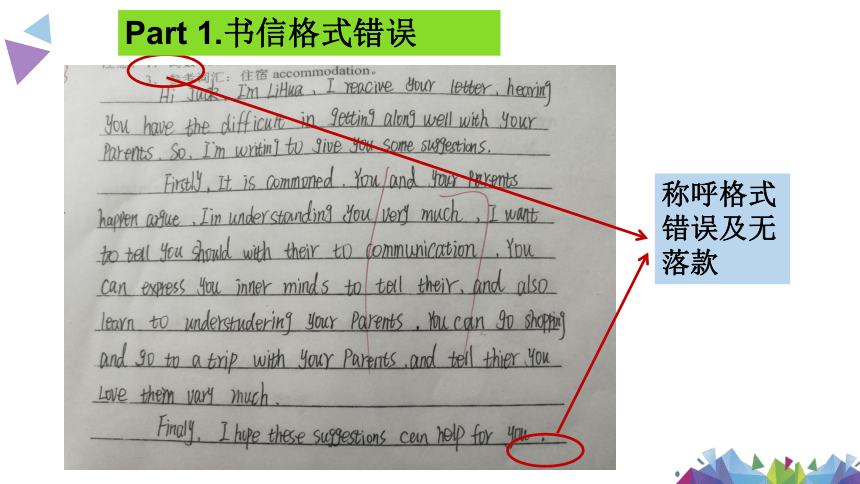 Part 1.书信格式错误
3、参考词汇：住宿 accommodation。
Hi Jack, I'm LiHua, I reacive your letter, hearing
you have the difficult in getting along well with your
Parents. So, I'm writing to give you some suggestions.
Firstly, It is commoned. You and your Parents
happen argue. I'm understanding you very much, I want
to tell you should with their to communication. You
can express you inner minds to tell their, and also
learn to understudering your Parents. You can go shopping
and go to a trip with your Parents. and tell thier you
Love them vary much.
Finaly, I hope these suggestions can help for you.
称呼格式
错误及无
落款